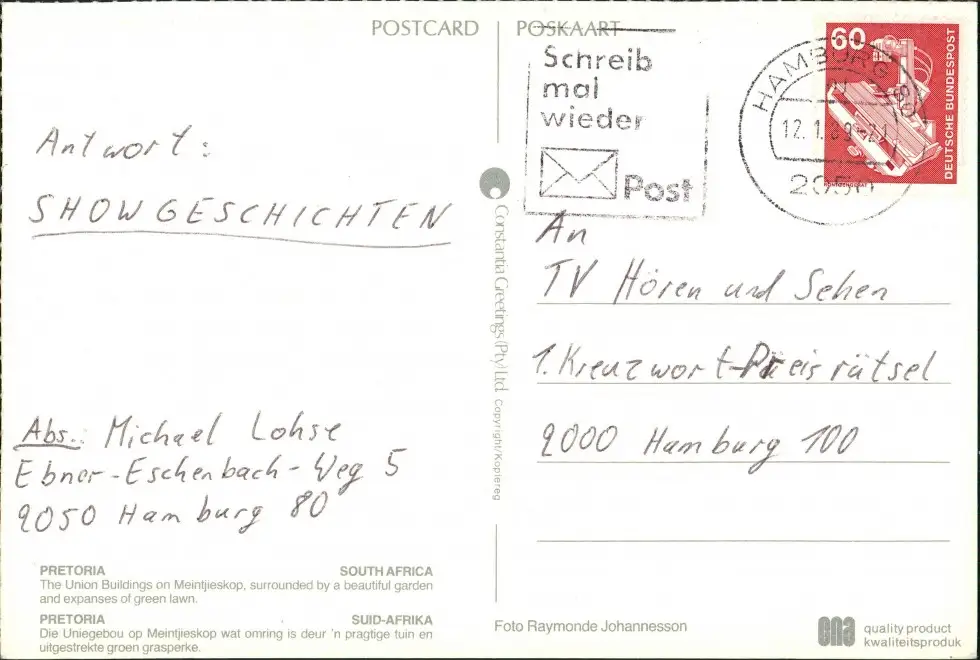 POSTCARD
POSKAART
Schreib
mal
wieder
Post
HAMBURG 80
2050
60
DEUTSCHE BUNDESPOST
Antwort:
SHOWGESCHICHTEN
Abs.: Michael Lohse
Ebner-Eschenbach-Weg 5
2050 Hamburg 80
An
TV Hören und Sehen
1. Kreuzwort-Preisrätsel
2000 Hamburg 100
Constantia Greetings (Pty) Ltd. Copyright/Kopiereg
PRETORIA SOUTH AFRICA
The Union Buildings on Meintjieskop, surrounded by a beautiful garden
and expanses of green lawn.
PRETORIA SUID-AFRIKA
Die Uniegebou op Meintjieskop wat omring is deur 'n pragtige tuin en
uitgestrekte groen grasperke.
Foto Raymonde Johannesson
ena quality product
kwaliteitsproduk